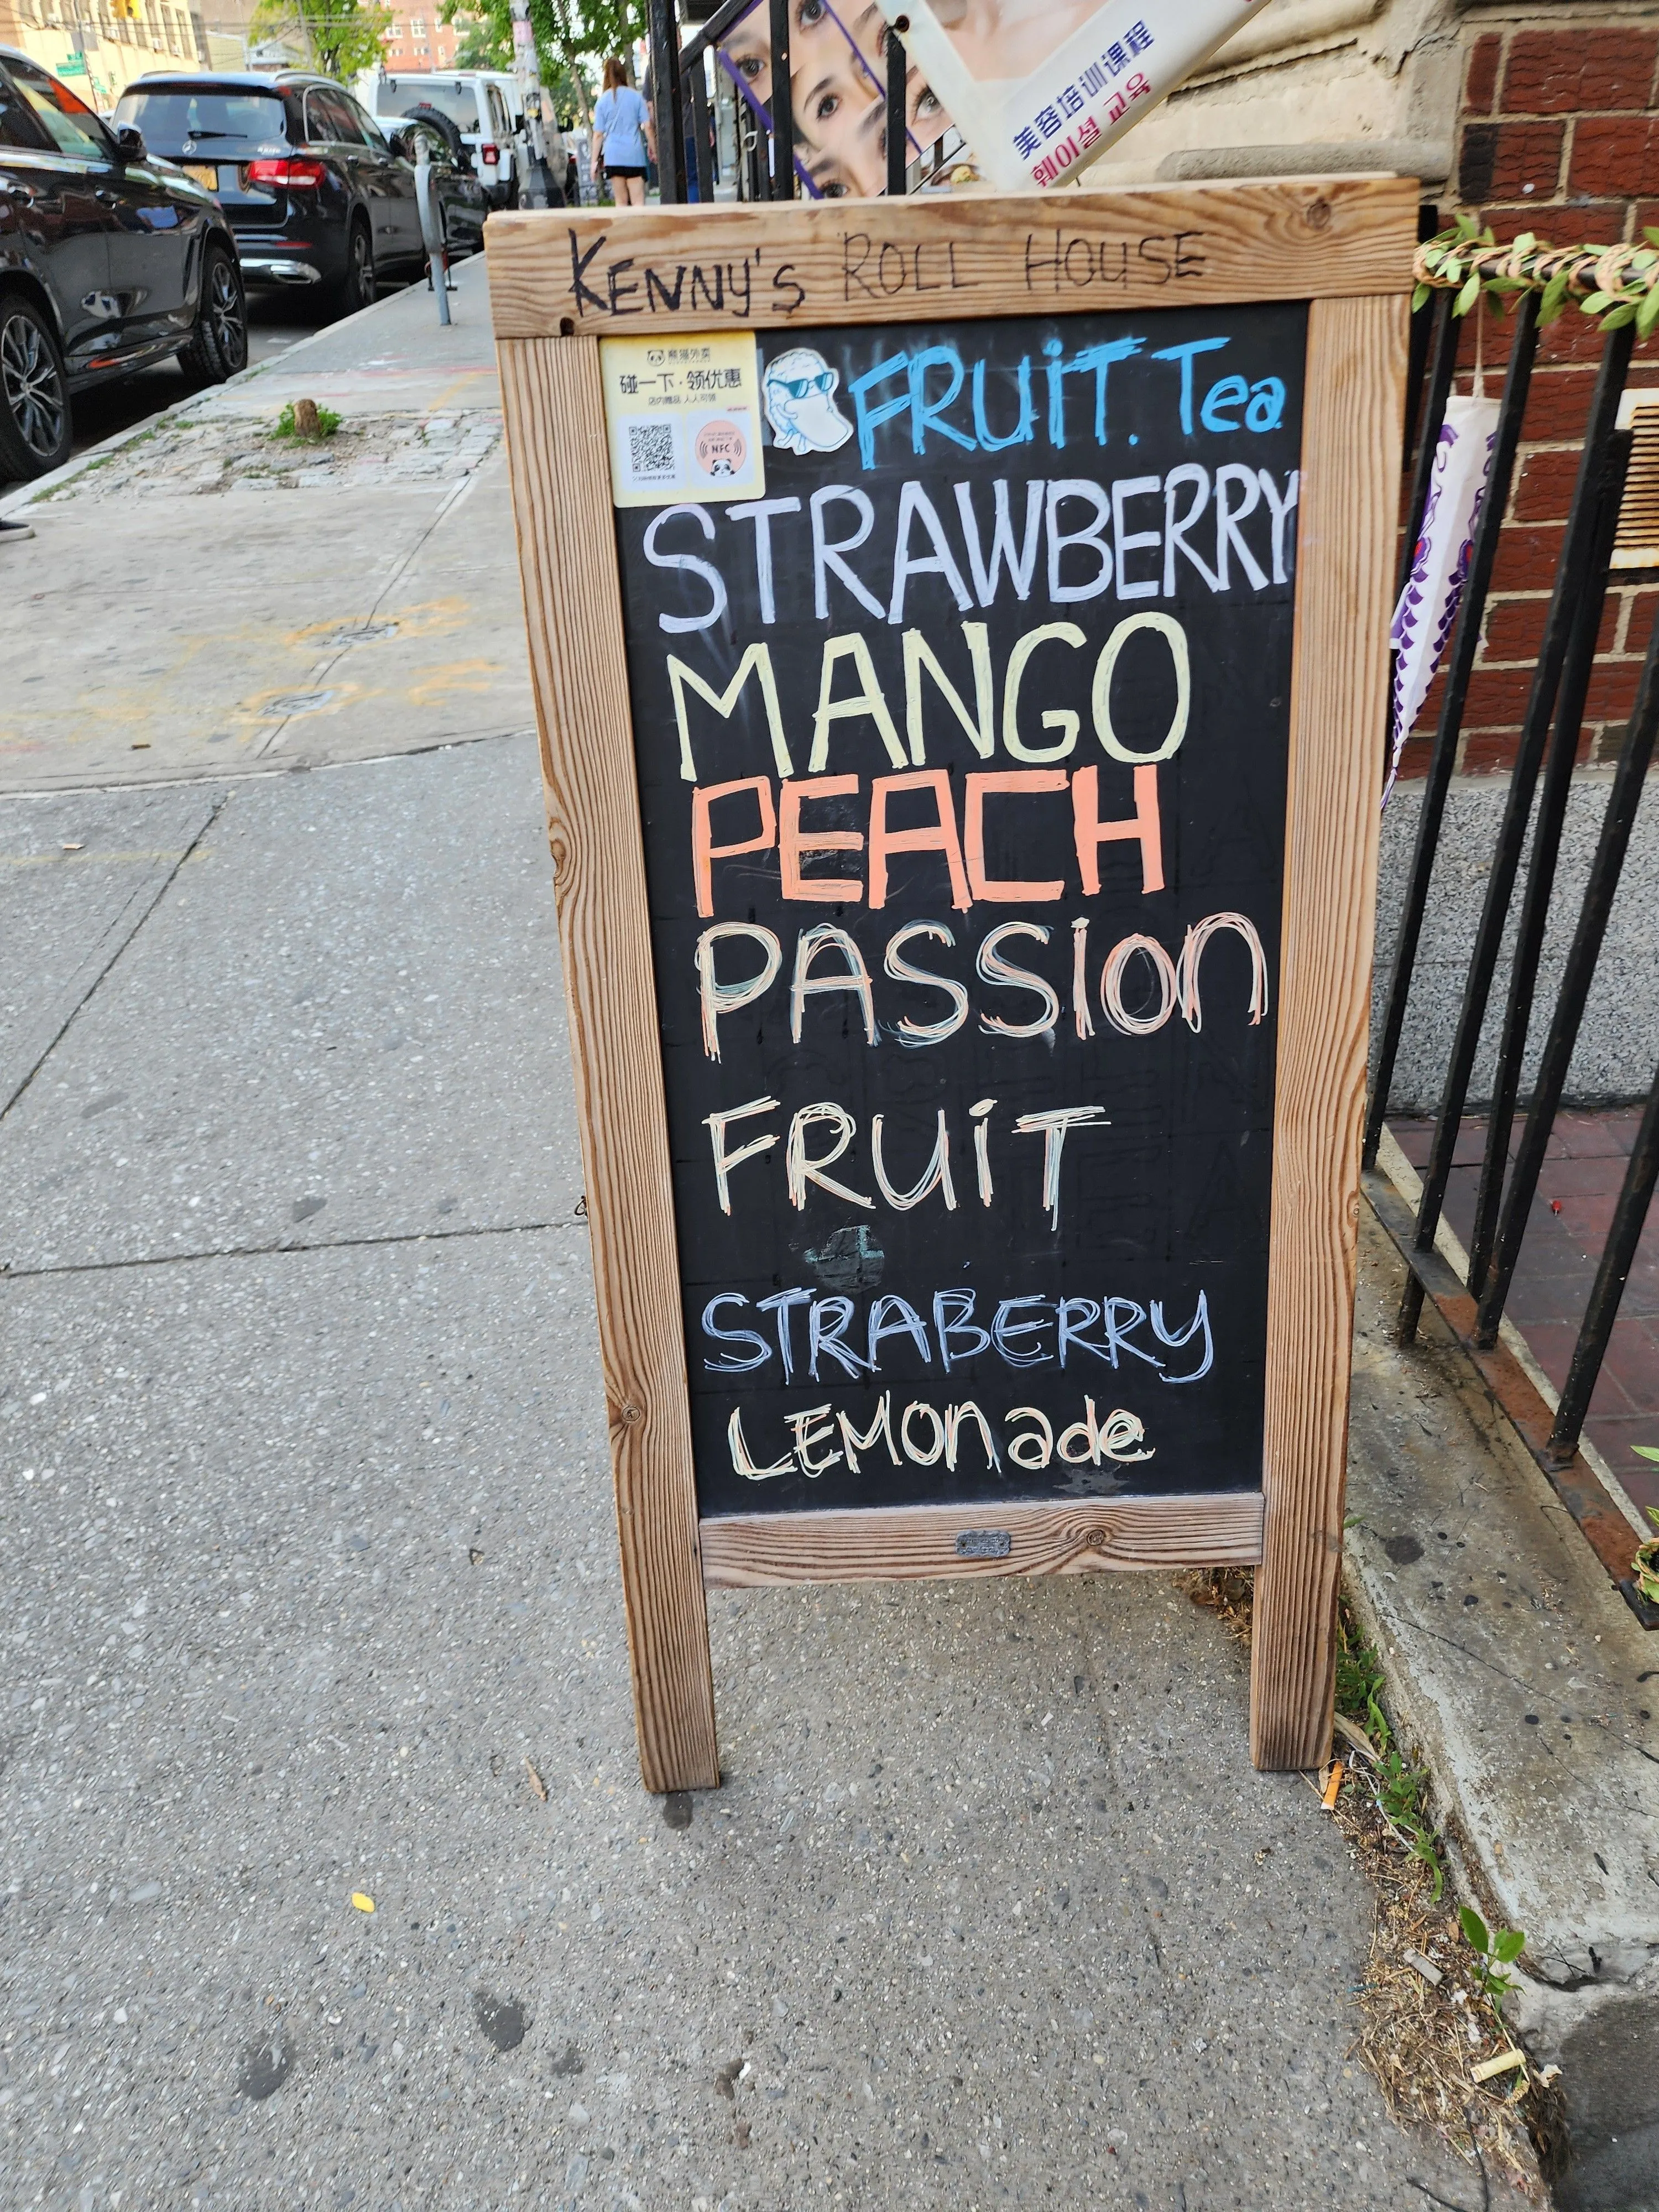 美容培训课程
훼이셜 교육
KENNY'S ROLL HOUSE
熊猫外卖
碰一下·领优惠
店内赠品 人人可领
NFC
FRUIT. Tea
STRAWBERRY
MANGO
PEACH
PASSION
FRUIT
STRABERRY
LEMONade